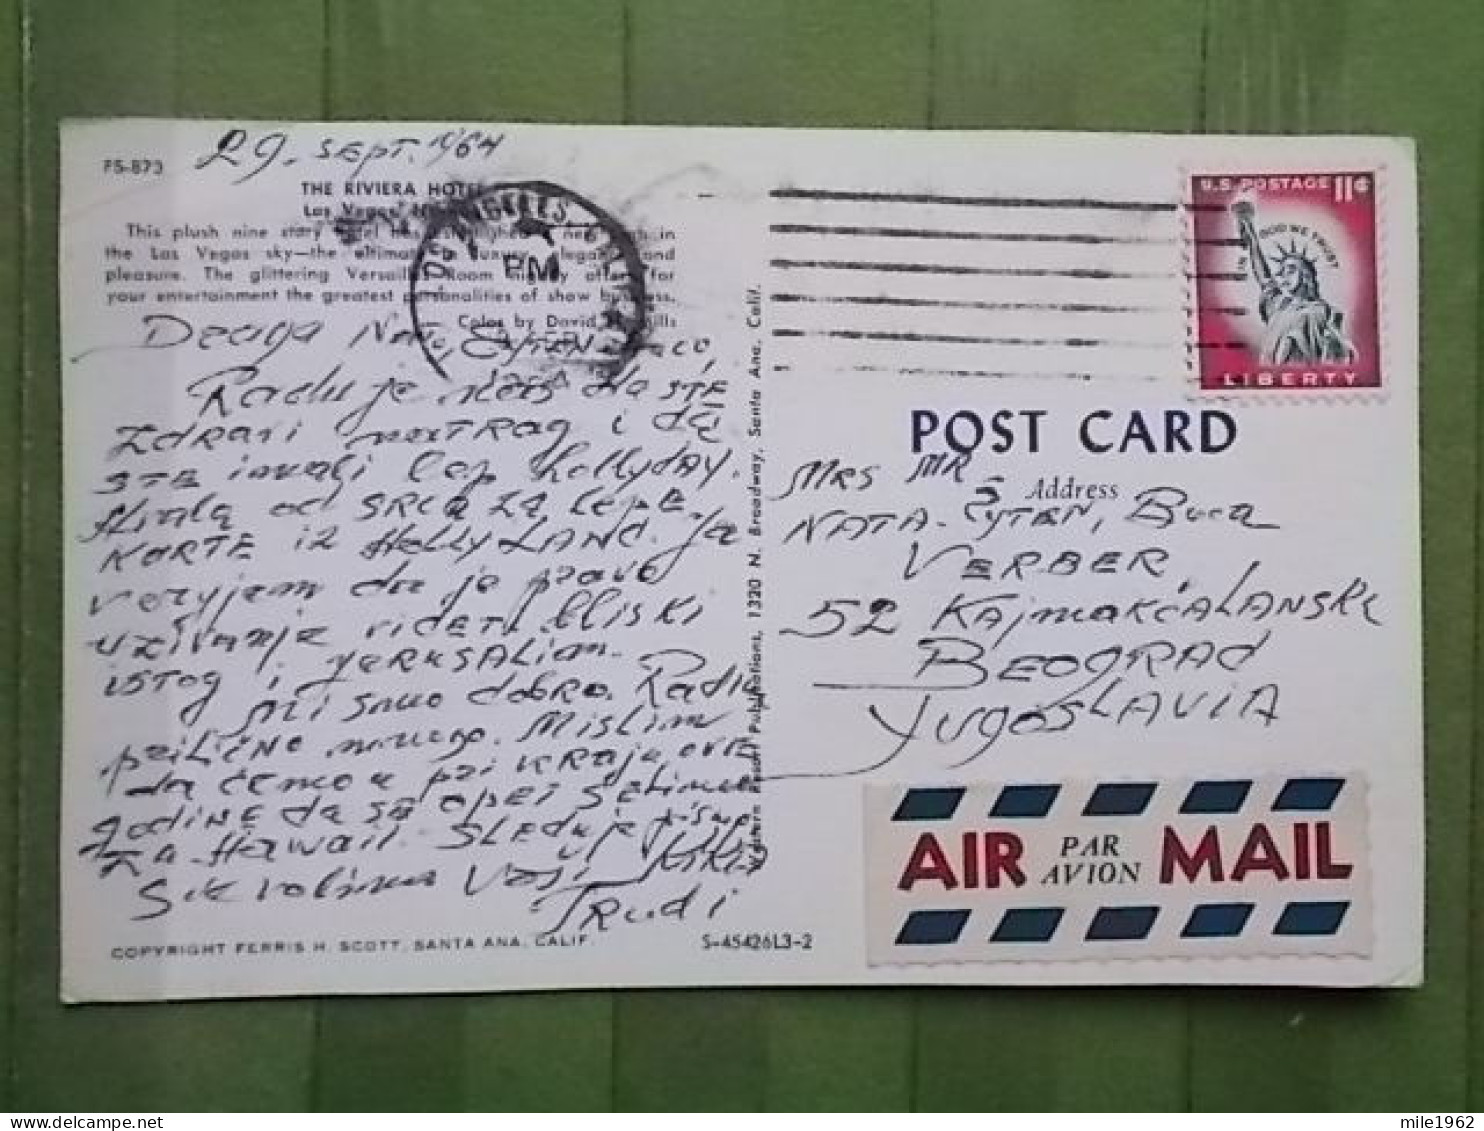 FS-873
29. SEPT. 1964
THE RIVIERA HOTEL
Las Vegas,
This plush nine story hotel has established a new high in
the Las Vegas sky—the ultimate in luxury, elegance and
pleasure. The glittering Versailles Room nightly offers for
your entertainment the greatest personalities of show business.
Color by David Mills
Draga Nato,
Radu je nas da STE
ZDRAVI natrag i da
STE imali lep Hollyday.
Hvala od SRCA ZA lepe
KARTE iz Holly LAND. Ja
veryjem da je pravo
uživanje videti bliski
istog i Jerusaliam.
Mi smo dobro. Radim
prilično mnogo. Mislim
da ćemo u pri kraju ove
godine da se opet selimo
za Hawaii. Sleduje pismo
Sve volimo Vaši Kiki
Trudi
COPYRIGHT FERRIS H. SCOTT, SANTA ANA, CALIF.
S-45426L3-2
Western Resort Publications, 1320 N. Broadway, Santa Ana, Calif.
LOS ANGELES, CALIF.
PM
SEP
U.S. POSTAGE 11¢
IN GOD WE TRUST
LIBERTY
POST CARD
Address
Mrs MR
NATA-Čyten, Buca
VERBER,
52 Kajmakčalanski
BEOGRAD
Yugoslavia
AIR PAR AVION MAIL
mile1962